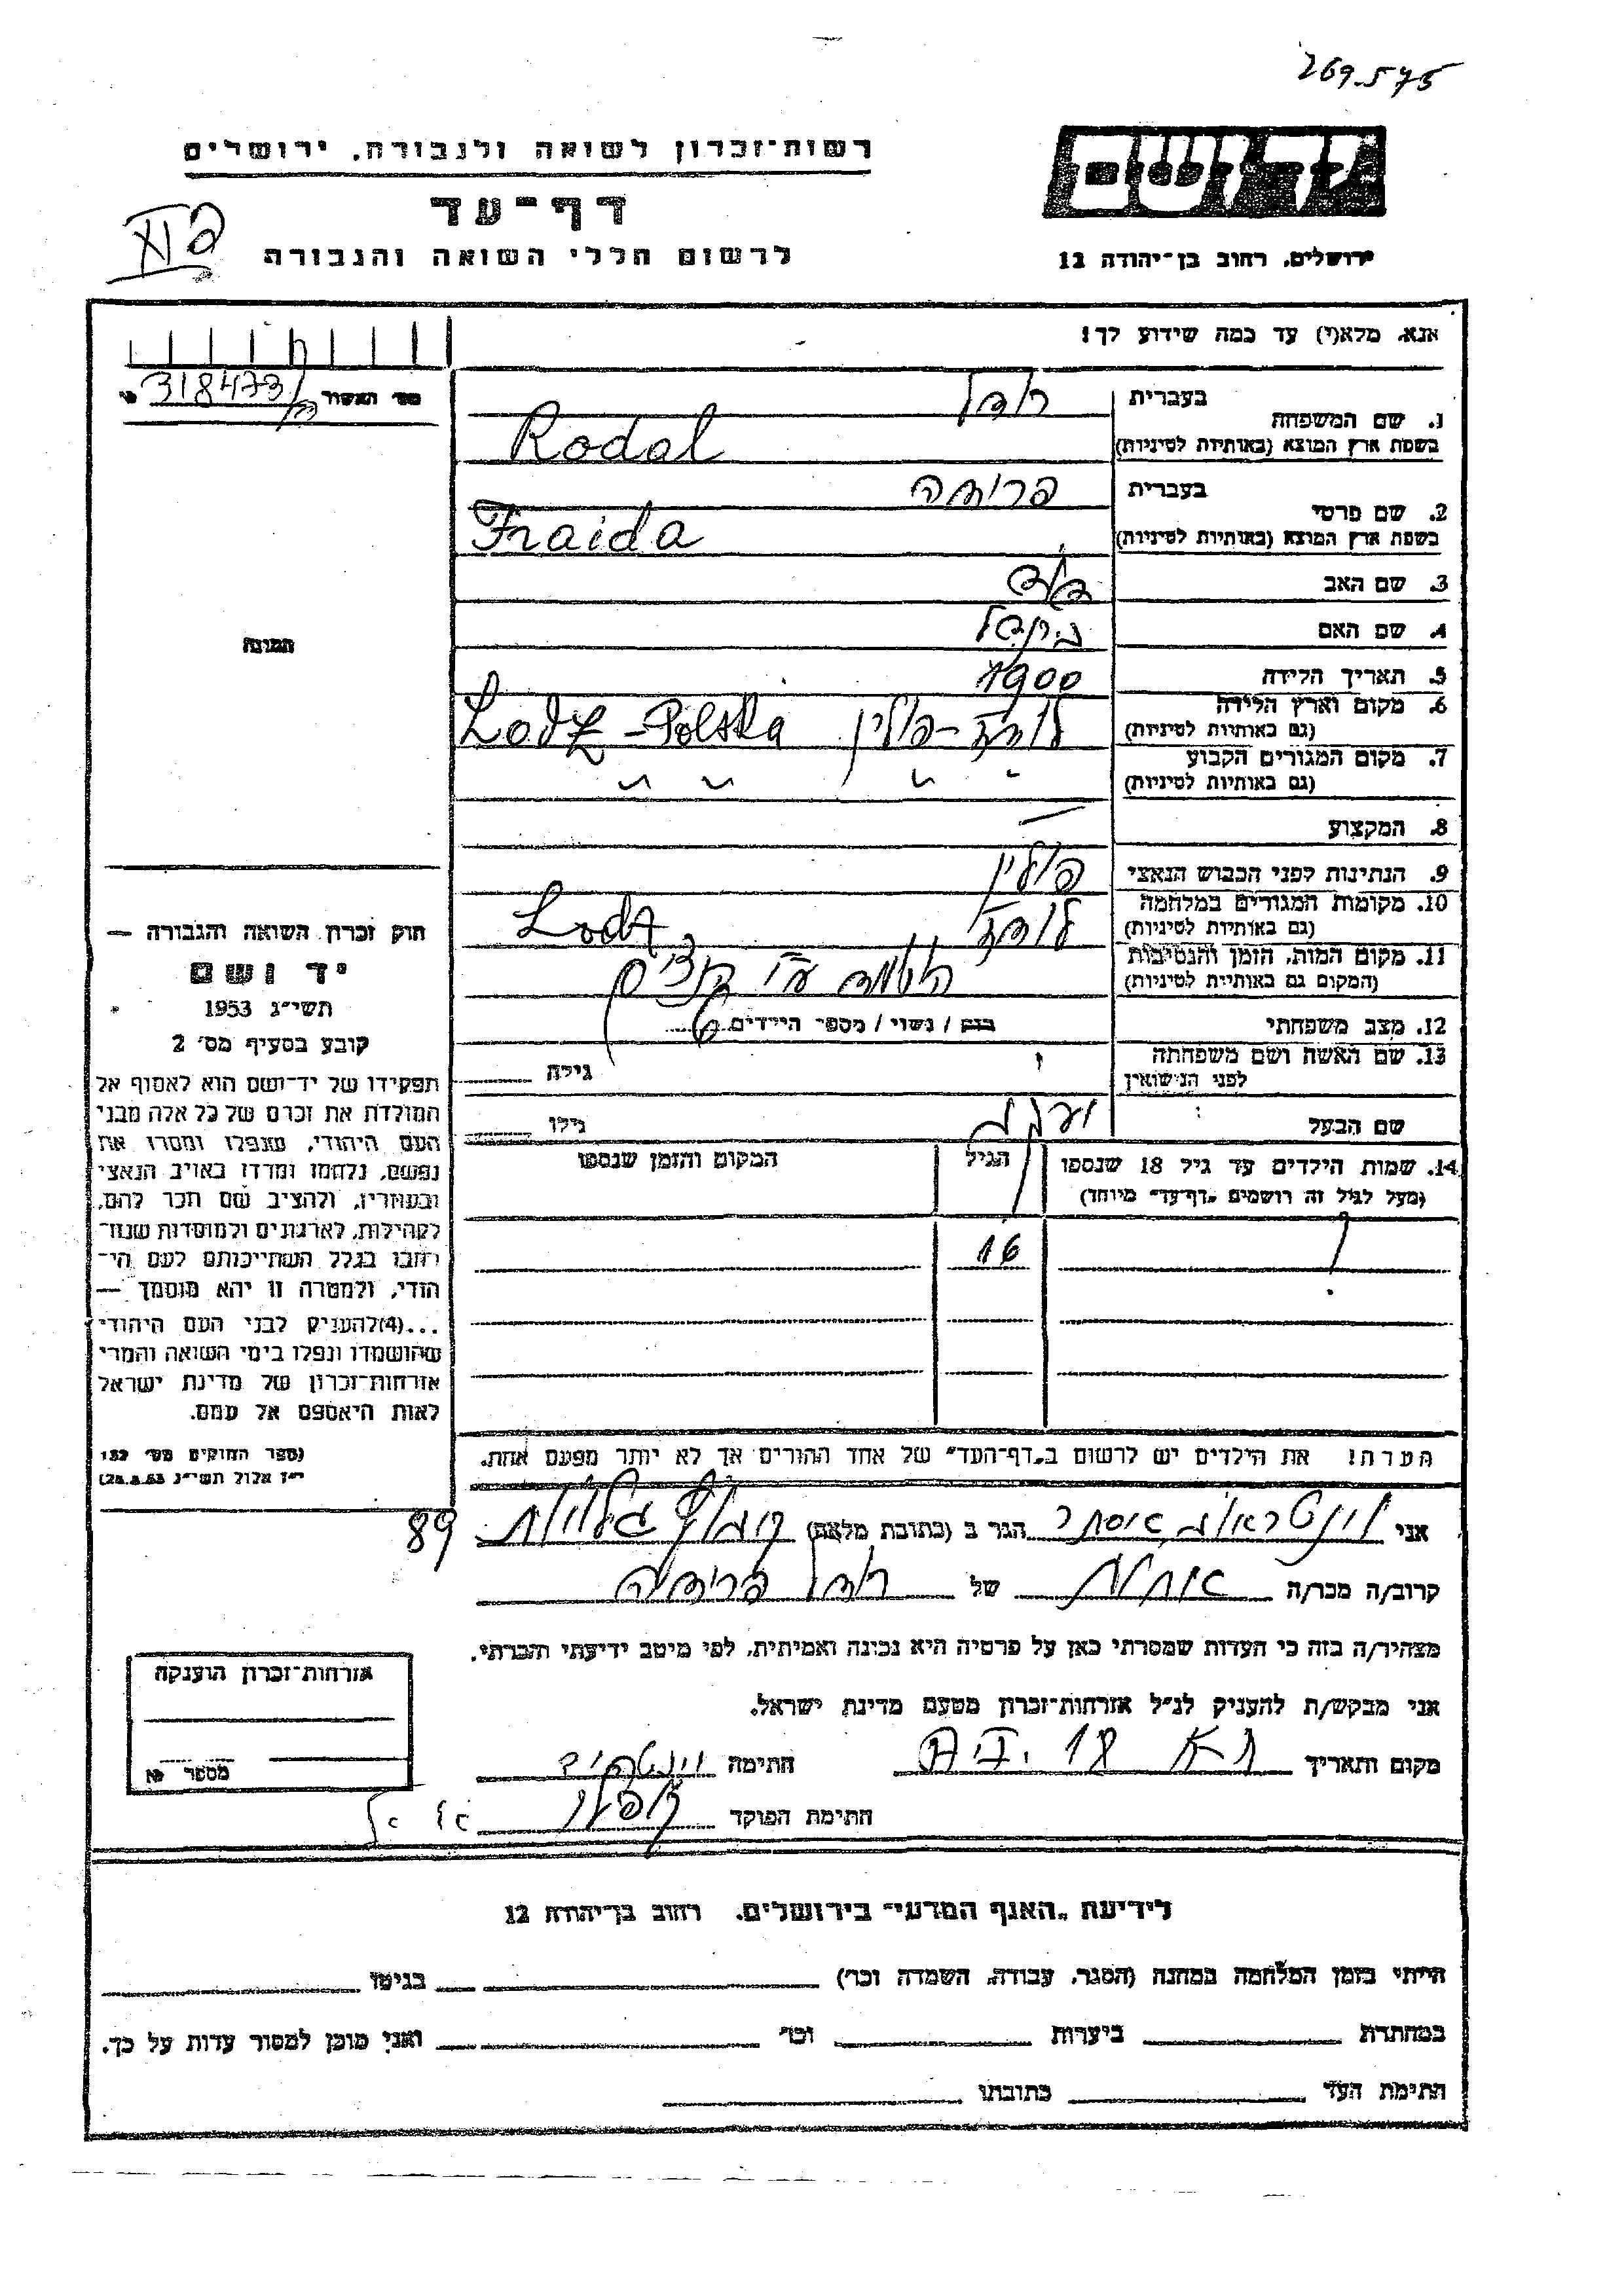 269.575
רשות־זכרון לשואה ולגבורה, ירושלים
דף־עד
לרשום חללי השואה והגבורה
יד ושם
ירושלים, רחוב בן־יהודה 12
אנא, מלא(י) עד כמה שידוע לך!
318473
1. שם המשפחה
בעברית רודל
בשפת ארץ המוצא (באותיות לטיניות) Rodal
2. שם פרטי
בעברית
בשפת ארץ המוצא (באותיות לטיניות) Fraida
3. שם האב
4. שם האם
5. תאריך הלידה 1900
6. מקום וארץ הלידה
(גם באותיות לטיניות) לודז - פולין Lodz - Polska
7. מקום המגורים הקבוע
(גם באותיות לטיניות) " " " "
8. המקצוע —
9. הנתינות לפני הכבוש הנאצי פולין
10. מקומות המגורים במלחמה
(גם באותיות לטיניות) לודז Lodz
11. מקום המות, הזמן והנסיבות
(המקום גם באותיות לטיניות)
12. מצב משפחתי רווק / נשוי / מספר הילדים
13. שם האשה ושם משפחתה
לפני הנישואין גילה
שם הבעל גילו
14. שמות הילדים עד גיל 18 שנספו
(מעל לגיל זה רושמים „דף־עד" מיוחד)
הגיל
המקום והזמן שנספו
? 16
הערה! את הילדים יש לרשום ב„דף־העד" של אחד ההורים אך לא יותר מפעם אחת.
התמונה
חוק זכרון השואה והגבורה —
יד ושם
תשי״ג 1953
קובע בסעיף מס׳ 2
תפקידו של יד־ושם הוא לאסוף אל
המולדת את זכרם של כל אלה מבני
העם היהודי, שנפלו ומסרו את
נפשם, נלחמו ומרדו באויב הנאצי
ובעוזריו, ולהציב שם וזכר להם,
לקהילות, לארגונים ולמוסדות שנח־
רבו בגלל השתייכותם לעם הי־
הודי, ולמטרה זו יהא מוסמך —
...(4)להעניק לבני העם היהודי
שהושמדו ונפלו בימי השואה והמרי
אזרחות־זכרון של מדינת ישראל
לאות היאספם אל עמם.
(ספר החוקים מס׳ 132
י״ז אלול תשי״ג 28.8.53)
אני הגר ב (כתובת מלאה) 89
קרוב/ה מכר/ה של רודל
מצהיר/ה בזה כי העדות שמסרתי כאן על פרטיה היא נכונה ואמיתית, לפי מיטב ידיעתי והכרתי.
אני מבקש/ת להעניק לנ״ל אזרחות־זכרון מטעם מדינת ישראל.
מקום ותאריך חתימה
חתימת הפוקד
אזרחות־זכרון הוענקה
מספר
לידיעת „האגף המדעי" בירושלים, רחוב בן־יהודה 12
הייתי בזמן המלחמה במחנה (הסגר, עבודה, השמדה וכו׳) בגיטו
במחתרת ביערות וכו׳ ואני מוכן למסור עדות על כך.
חתימת העד כתובתו